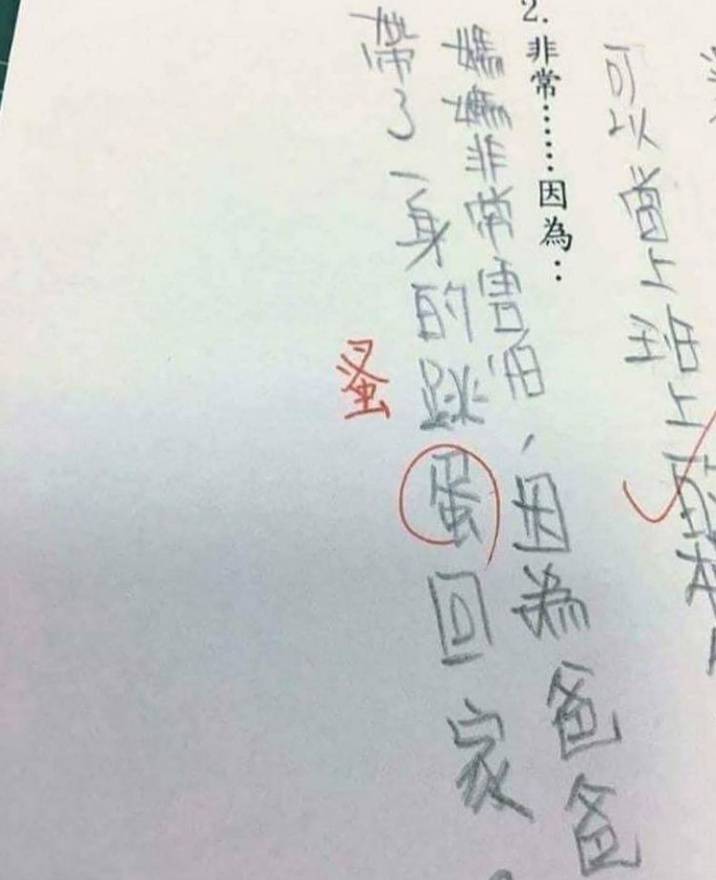 可以當上班上
2.非常……因為‥
媽媽非常害怕，因為爸爸
帶了一身的跳蛋回家。
蚤